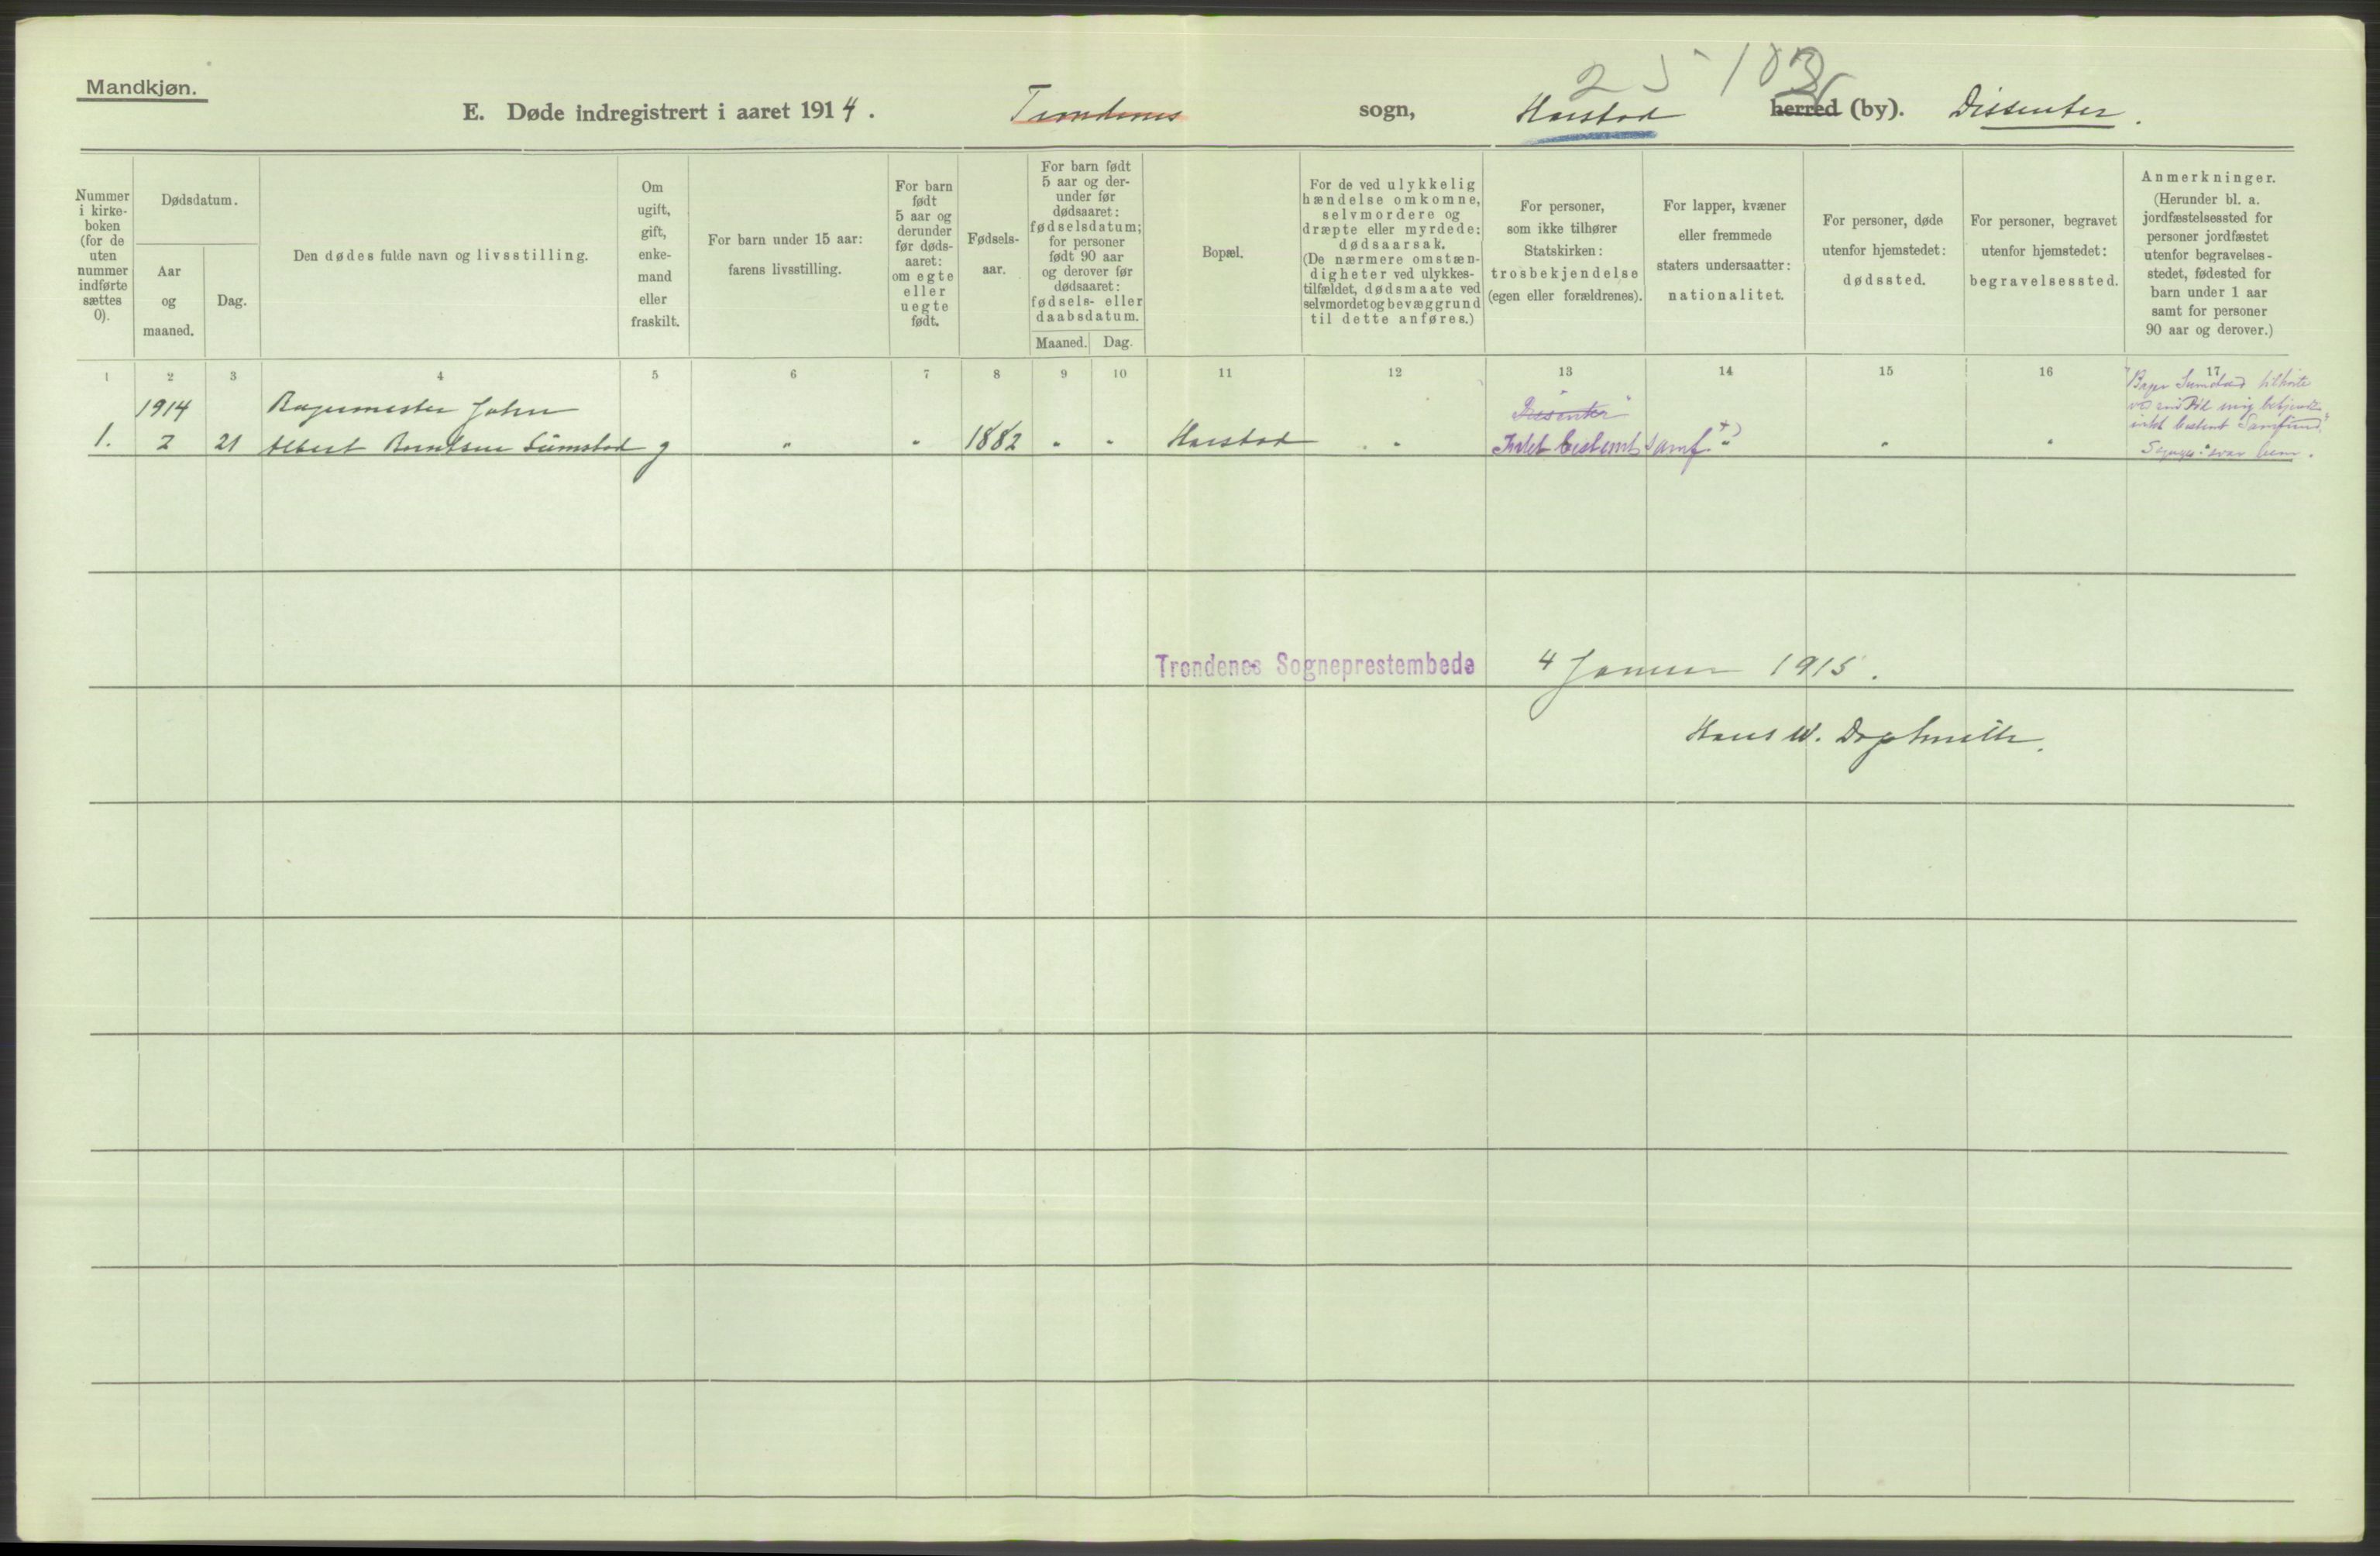 Mandkjøn.
25 103
E. Døde indregistrert i aaret 1914. Trondenes sogn, Harstad herred (by). Dissenter.
Nummer i kirke-boken (for de uten nummer indførte sættes 0).
Dødsdatum.
Aar og maaned.
Dag.
Den dødes fulde navn og livsstilling.
Om ugift, gift, enke-mand eller fraskilt.
For barn under 15 aar: farens livsstilling.
For barn født 5 aar og derunder før døds-aaret: om egte eller uegte født.
Fødsels-aar.
For barn født 5 aar og der-under før dødsaaret: fødselsdatum; for personer født 90 aar og derover før dødsaaret: fødsels- eller daabsdatum.
Maaned. Dag.
Bopæl.
For de ved ulykkelig hændelse omkomne, selvmordere og dræpte eller myrdede: dødsaarsak. (De nærmere omstæn-digheter ved ulykkes-tilfældet, dødsmaate ved selvmordet og bevæggrund til dette anføres.)
For personer, som ikke tilhører Statskirken: trosbekjendelse (egen eller forældrenes).
For lapper, kvæner eller fremmede staters undersaatter: nationalitet.
For personer, døde utenfor hjemstedet: dødssted.
For personer, begravet utenfor hjemstedet: begravelsessted.
Anmerkninger. (Herunder bl. a. jordfæstelsessted for personer jordfæstet utenfor begravelses-stedet, fødested for barn under 1 aar samt for personer 90 aar og derover.)
1 2 3 4 5 6 7 8 9 10 11 12 13 14 15 16 17
1914 Bagermester John "Dissenter"
1. 2 21 Albert Berntsen Sumstad g " " 1882 " " Harstad " Intet bestemt Samf. +) " " "
"Bager Sumstad tilhørte
intet bestemt Samfund."
Trondenes Sogneprestembede 4 Januar 1915.
Hans W.